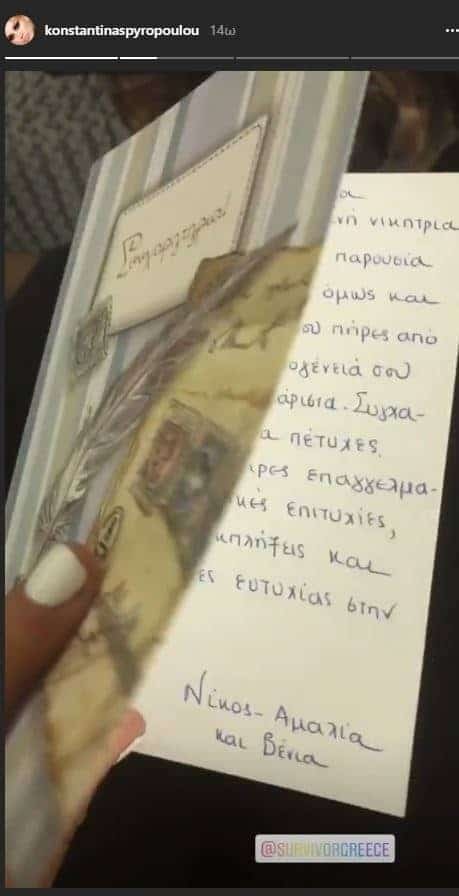 konstantinaspyropoulou 14ω
Συγχαρητήρια!
α
νή νικήτρια
παρουσία
όμως και
ου πήρες από
ογένειά σου
άριστα. Συγχα-
α πέτυχες.
ρες επαγγελμα-
κές επιτυχίες,
κπλήξεις και
ες ευτυχίας στην
Νίκος - Αμαλία
και Βένια
@SURVIVORGREECE